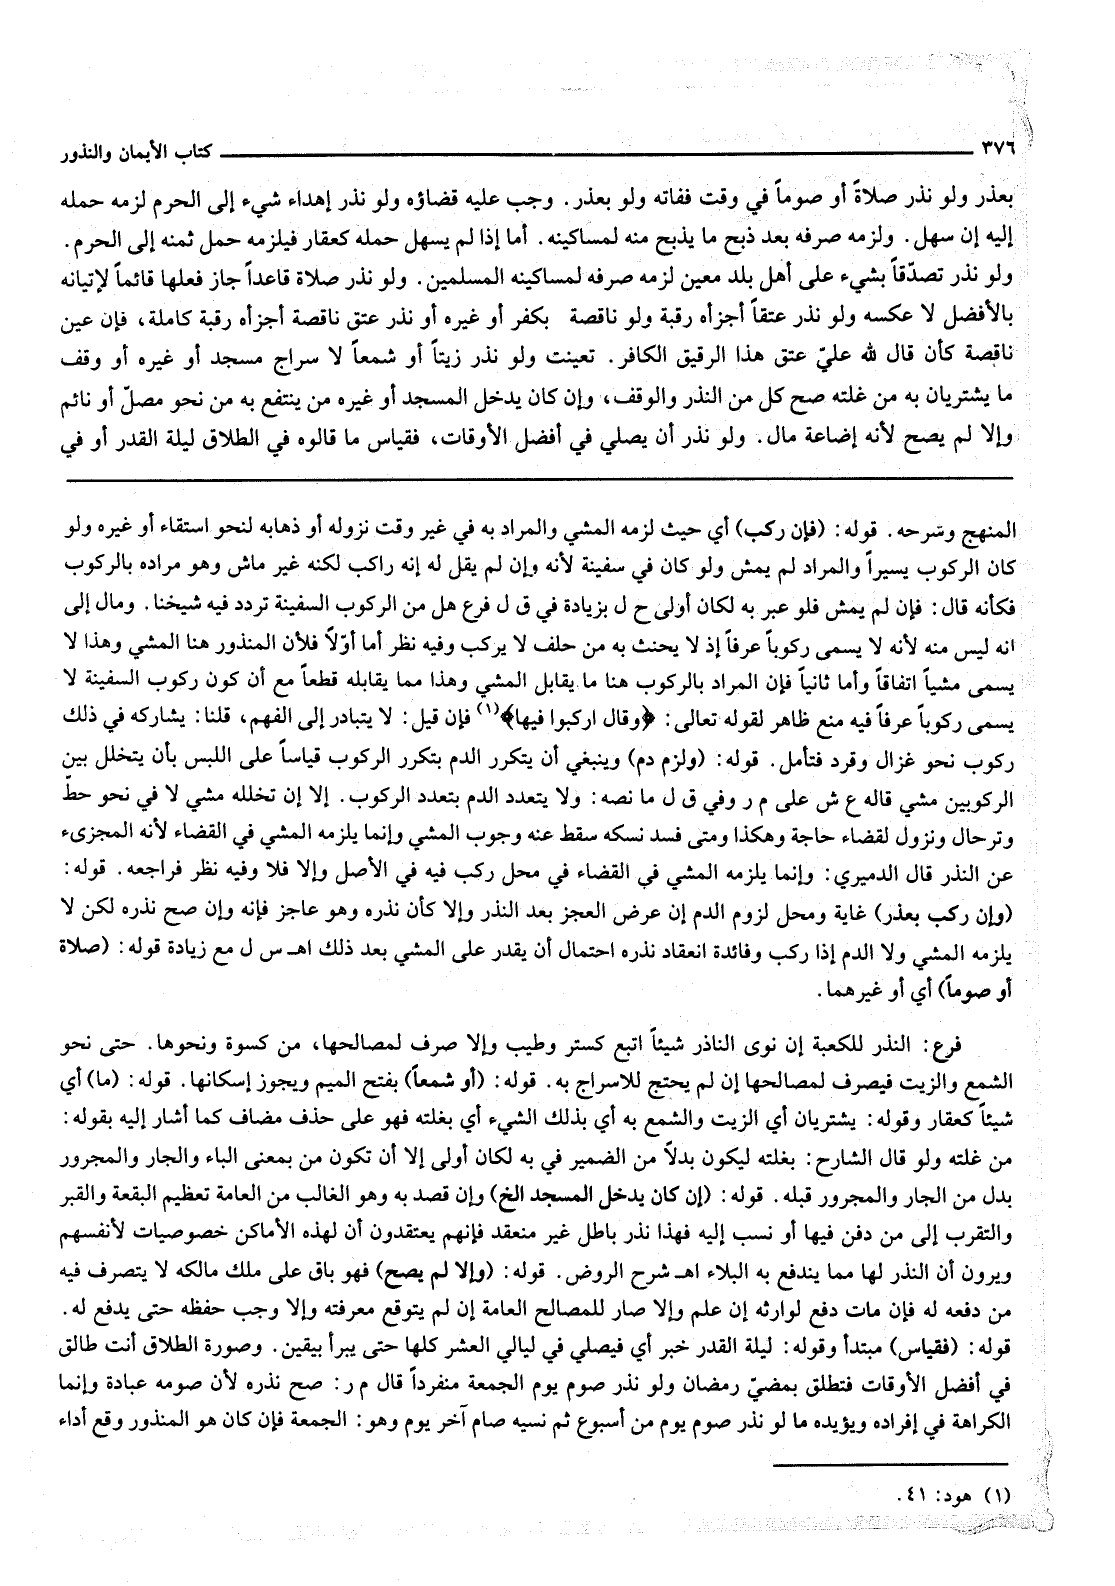 ٣٧٦ كتاب الأيمان والنذور
بعذر ولو نذر صلاةً أو صوماً في وقت ففاته ولو بعذر. وجب عليه قضاؤه ولو نذر إهداء شيء إلى الحرم لزمه حمله
إليه إن سهل. ولزمه صرفه بعد ذبح ما يذبح منه لمساكينه. أما إذا لم يسهل حمله كعقار فيلزمه حمل ثمنه إلى الحرم.
ولو نذر تصدّقاً بشيء على أهل بلد معين لزمه صرفه لمساكينه المسلمين. ولو نذر صلاة قاعداً جاز فعلها قائماً لإتيانه
بالأفضل لا عكسه ولو نذر عتقاً أجزأه رقبة ولو ناقصة بكفر أو غيره أو نذر عتق ناقصة أجزأه رقبة كاملة، فإن عين
ناقصة كأن قال لله عليّ عتق هذا الرقيق الكافر. تعينت ولو نذر زيتاً أو شمعاً لا سراج مسجد أو غيره أو وقف
ما يشتريان به من غلته صح كل من النذر والوقف، وإن كان يدخل المسجد أو غيره من ينتفع به من نحو مصلّ أو نائم
وإلا لم يصح لأنه إضاعة مال. ولو نذر أن يصلي في أفضل الأوقات، فقياس ما قالوه في الطلاق ليلة القدر أو في
المنهج وشرحه. قوله: (فإن ركب) أي حيث لزمه المشي والمراد به في غير وقت نزوله أو ذهابه لنحو استقاء أو غيره ولو
كان الركوب يسيراً والمراد لم يمش ولو كان في سفينة لأنه وإن لم يقل له إنه راكب لكنه غير ماش وهو مراده بالركوب
فكأنه قال: فإن لم يمش فلو عبر به لكان أولى ح ل بزيادة في ق ل فرع هل من الركوب السفينة تردد فيه شيخنا. ومال إلى
انه ليس منه لأنه لا يسمى ركوباً عرفاً إذ لا يحنث به من حلف لا يركب وفيه نظر أما أوّلاً فلأن المنذور هنا المشي وهذا لا
يسمى مشياً اتفاقاً وأما ثانياً فإن المراد بالركوب هنا ما يقابل المشي وهذا مما يقابله قطعاً مع أن كون ركوب السفينة لا
يسمى ركوباً عرفاً فيه منع ظاهر لقوله تعالى: ﴿وقال اركبوا فيها﴾(١) فإن قيل: لا يتبادر إلى الفهم، قلنا: يشاركه في ذلك
ركوب نحو غزال وقرد فتأمل. قوله: (ولزم دم) وينبغي أن يتكرر الدم بتكرر الركوب قياساً على اللبس بأن يتخلل بين
الركوبين مشي قاله ع ش على م ر وفي ق ل ما نصه: ولا يتعدد الدم بتعدد الركوب. إلا إن تخلله مشي لا في نحو حطّ
وترحال ونزول لقضاء حاجة وهكذا ومتى فسد نسكه سقط عنه وجوب المشي وإنما يلزمه المشي في القضاء لأنه المجزىء
عن النذر قال الدميري: وإنما يلزمه المشي في القضاء في محل ركب فيه في الأصل وإلا فلا وفيه نظر فراجعه. قوله:
(وإن ركب بعذر) غاية ومحل لزوم الدم إن عرض العجز بعد النذر وإلا كأن نذره وهو عاجز فإنه وإن صح نذره لكن لا
يلزمه المشي ولا الدم إذا ركب وفائدة انعقاد نذره احتمال أن يقدر على المشي بعد ذلك اهـ س ل مع زيادة قوله: (صلاة
أو صوماً) أي أو غيرهما.
فرع: النذر للكعبة إن نوى الناذر شيئاً اتبع كستر وطيب وإلا صرف لمصالحها، من كسوة ونحوها. حتى نحو
الشمع والزيت فيصرف لمصالحها إن لم يحتج للاسراج به. قوله: (أو شمعاً) بفتح الميم ويجوز إسكانها. قوله: (ما) أي
شيئاً كعقار وقوله: يشتريان أي الزيت والشمع به أي بذلك الشيء أي بغلته فهو على حذف مضاف كما أشار إليه بقوله:
من غلته ولو قال الشارح: بغلته ليكون بدلاً من الضمير في به لكان أولى إلا أن تكون من بمعنى الباء والجار والمجرور
بدل من الجار والمجرور قبله. قوله: (إن كان يدخل المسجد الخ) وإن قصد به وهو الغالب من العامة تعظيم البقعة والقبر
والتقرب إلى من دفن فيها أو نسب إليه فهذا نذر باطل غير منعقد فإنهم يعتقدون أن لهذه الأماكن خصوصيات لأنفسهم
ويرون أن النذر لها مما يندفع به البلاء اهـ شرح الروض. قوله: (وإلا لم يصح) فهو باق على ملك مالكه لا يتصرف فيه
من دفعه له فإن مات دفع لوارثه إن علم وإلا صار للمصالح العامة إن لم يتوقع معرفته وإلا وجب حفظه حتى يدفع له.
قوله: (فقياس) مبتدأ وقوله: ليلة القدر خبر أي فيصلي في ليالي العشر كلها حتى يبرأ بيقين. وصورة الطلاق أنت طالق
في أفضل الأوقات فتطلق بمضيّ رمضان ولو نذر صوم يوم الجمعة منفرداً قال م ر: صح نذره لأن صومه عبادة وإنما
الكراهة في إفراده ويؤيده ما لو نذر صوم يوم من أسبوع ثم نسيه صام آخر يوم وهو: الجمعة فإن كان هو المنذور وقع أداء
(١) هود: ٤١.